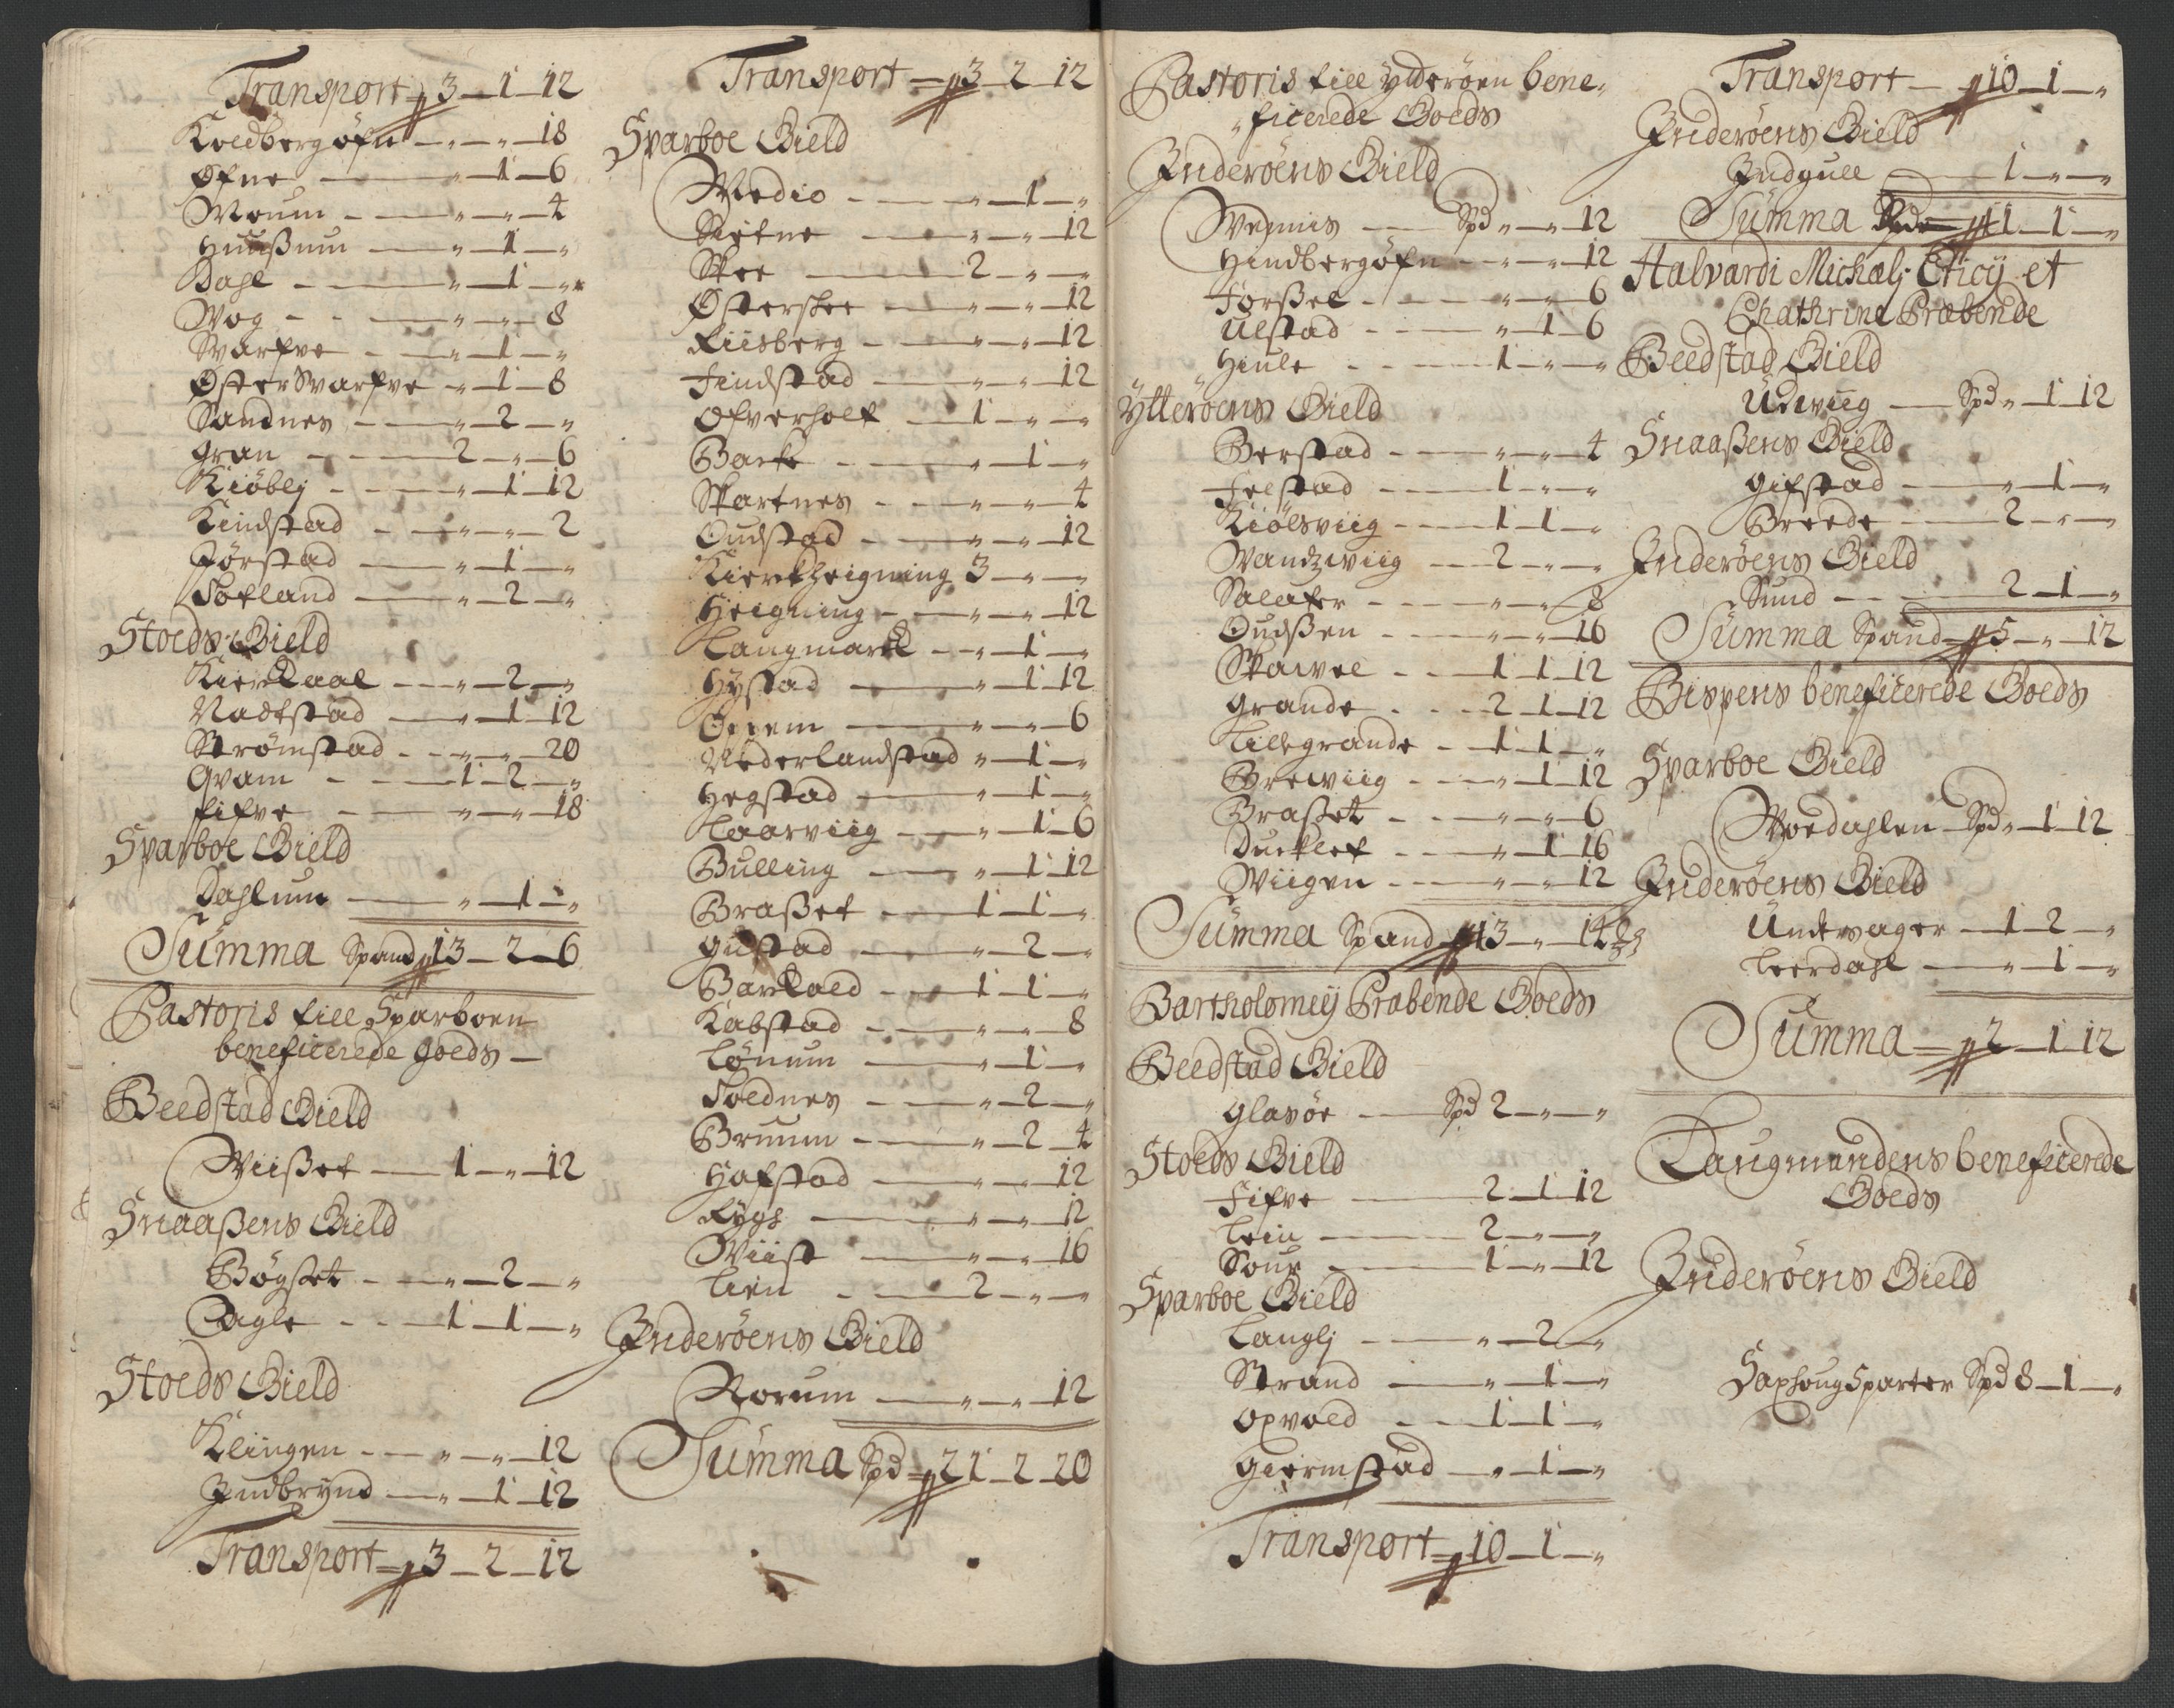 Transport 3 - 1 - 12
Koldbergøfn - " - " - 18
Øfne - " - 1 - 6
Moum - " - " - 4
Huußum - " - 1 - "
Dahl - " - 1 - "
Wog - " - " - 8
Warfve - " - 1 - "
Øster Warfve - " - 1 - 8
Sandnes - " - 2 - "
Gran - 2 - " - 6
Kiøblj - " - 1 - 12
Kindstad - " - " - 2
Førstad - " - 1 - "
Følland - " - 2 - "
Stoeds Gield
Kirkaal - " - 2 - "
Nadstad - " - 1 - 12
Strømstad - " - " - 20
Qvam - 1 - 2 - "
Fifve - " - " - 18
Sparboe Gield
Dahlum - " - 1 - "
Summa Spand 13 - 2 - 6
Pastoris till Sparboen
beneficerede goeds
Beedstad Gield
Wiißet - 1 - " - 12
Snaaßens Gield
Bøgset - " - 2 - "
Agle - 1 - 1 - "
Stoeds Gield
Klingen - " - " - 12
Indbrynd - " - 1 - 12
Transport 3 - 2 - 12
Transport 3 - 2 - 12
Sparboe Gield
Wedio - " - 1 - "
Siefne - " - " - 12
Skee - 2 - " - "
Østerskee - " - " - 12
Riisberg - " - " - 12
Findstad - " - " - 12
Ofverholt - 1 - " - "
Barke - " - 1 - "
Skartnes - " - " - 4
Oudstad - " - " - 12
Kierkheigning 3 - " - "
Heigning - " - " - 12
Langmarck - " - 1 - "
Hÿstad - " - 1 - 12
Oppem - " - " - 6
Nederlandstad " - 1 - "
Hegstad - " - 1 - "
Laarviig - " - 1 - 6
Bulling - " - 1 - 12
Braßet - 1 - 1 - "
Gustad - " - 2 - "
Barkald - 1 - 1 - "
Kabstad - " - " - 8
Lønum - " - 1 - "
Foldnes - " - 2 - "
Bruum - " - 2 - 4
Hafstad - " - " - 12
Rygh - " - " - 12
Wiist - " - " - 16
Lien - 2 - " - "
Inderøens Gield
Rorum - " - " - 12
Summa Spd 21 - 2 - 20
Pastoris till Ytterøen bene,
"ficerede Goeds
Inderøens Gield
Wennis - Spd " - " - 12
Hindbergøfn - " - " - 12
Forßet - " - " - 6
Ulstad - " - 1 - 6
Hiule - 1 - " - "
Ÿtterøens Gield
Berstad - " - " - 4
Felstad - 1 - " - "
Kiølsviig - 1 - 1 - "
Wandzwiig - 2 - " - "
Salater - " - " - 8
Oudßen - " - " - 16
Skawel - 1 - 1 - 12
Grande - 2 - 1 - 12
Lillegrande - 1 - 1 - "
Brewiig - " - 1 - 12
Braßet - " - " - 6
Duklet - " - 1 - 16
Wiigen - " - " - 12
Summa Spand 13 - " - 14
Bartholomeij Præbende Goeds
Beedstad Gield
Glasøe - Spd 2 - " - "
Stoeds Gield
Fifve - 2 - 1 - 12
Lein - 2 - " - "
Sour - 1 - " - 12
Sparboe Gield
Langlj - " - 2 - "
Strand - " - 1 - "
Opvold - 1 - 1 - "
Giermstad - " - 1 - "
Transport 10 - 1 - "
Transport - 10 - 1 - "
Inderøens Gield
Indgull - 1 - " - "
Summa Spd 11 - 1 - "
Halvardi Michælj Ericij et
Chathrine Præbende
Beedstad Gield
Udwiig - Spd " - 1 - 12
Snaaßens Gield
Gifstad - " - 1 - "
Breede - 2 - " - "
Inderøens Gield
Sund - 2 - 1 - "
Summa Spand 5 - " - 12
Bispens beneficerede Goeds
Sparboe Gield
Woedahlen - Spd " - 1 - 12
Inderøens Gield
Undervager - 1 - 2 - "
Leerdahl - " - 1 - "
Summa 2 - 1 - 12
Laugmandens beneficerede
Goeds
Inderøens Gield
Saxhoug Sparter Spd 8 - 1 - "